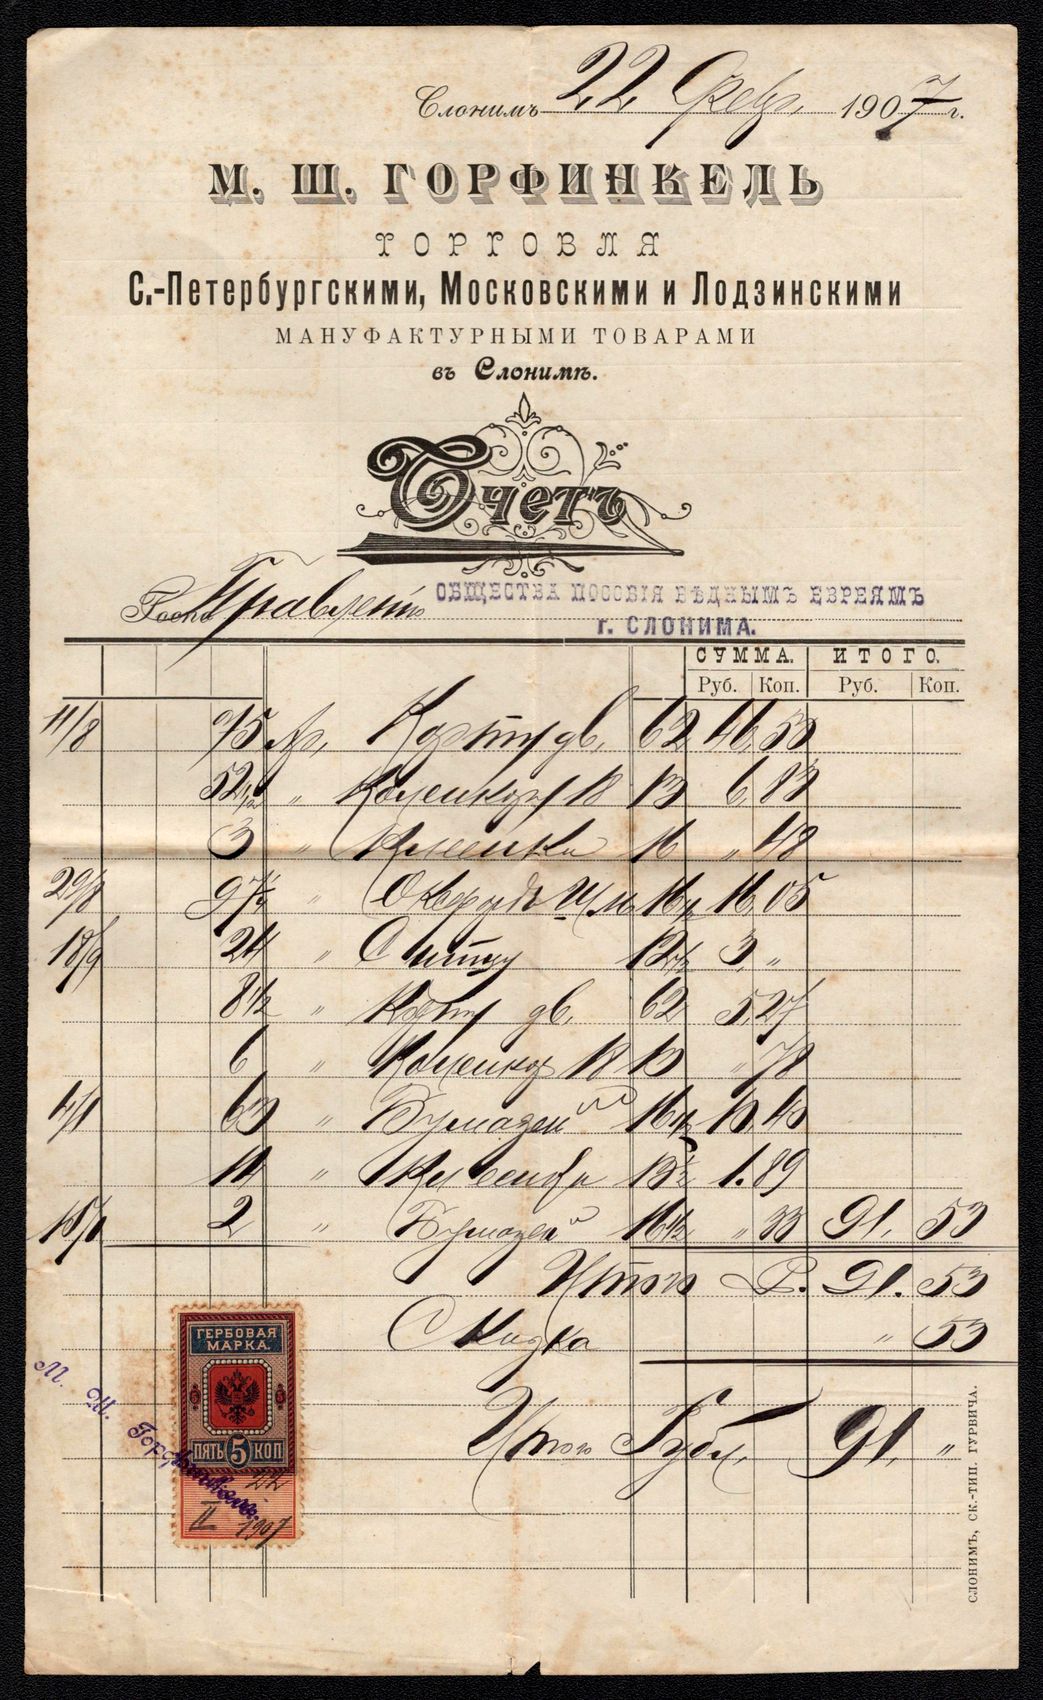 Слонимъ 22 Февр. 1907 г.
М. Ш. ГОРФИНКЕЛЬ
ТОРГОВЛЯ
С.-Петербургскими, Московскими и Лодзинскими
МАНУФАКТУРНЫМИ ТОВАРАМИ
въ Слонимѣ.
Счетъ
Правленiю ОБЩЕСТВА ПОСОБІЯ БѢДНЫМЪ ЕВРЕЯМЪ
г. СЛОНИМА.
СУММА. ИТОГО.
Руб. Коп. Руб. Коп.
11/8 75 Ар. дв. 62 46,50
52 1/2 " Коленкору 18 13 6,83
3 " Клеенки 16 " 48
29/8 97 1/2 " 16 1/2 16,05
18/9 24 " Ситцу 12 1/2 3, "
8 1/2 " дв. 62 5,27
6 " Коленкор 18 13 " 78
63 " Бумазеи 16 1/2 10,40
14 " 13 1/2 1.89
2 " Бумазеи 16 1/2 " 33 91, 53
Итого Р. 91. 53
Скидка " 53
Итого Рубл. 91, "
ГЕРБОВАЯ
МАРКА.
5 5
ПЯТЬ 5 КОП
22
II 1907
М. Ш. Горфинкель.
СЛОНИМЪ, СК.-ТИП. ГУРВИЧА.